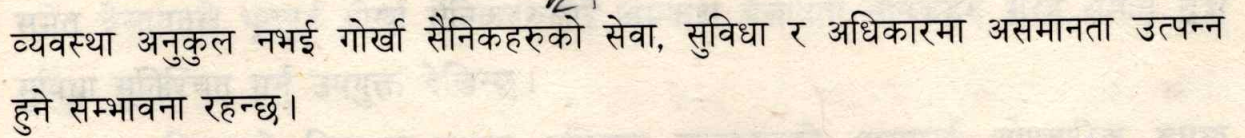 व्यवस्था अनुकुल नभई गोर्खा सैनिकहरुको सेवा, सुविधा र अधिकारमा असमानता उत्पन्न
हुने सम्भावना रहन्छ।